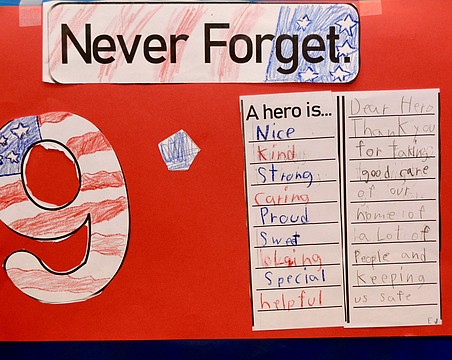 Never Forget.
9
A hero is...
Nice
kind
Strong
caring
Proud
Sweet
Special
helpful
Dear Hero
Thank you
for taking
good care
of our
home of
a Lot of
People and
keeping
us safe